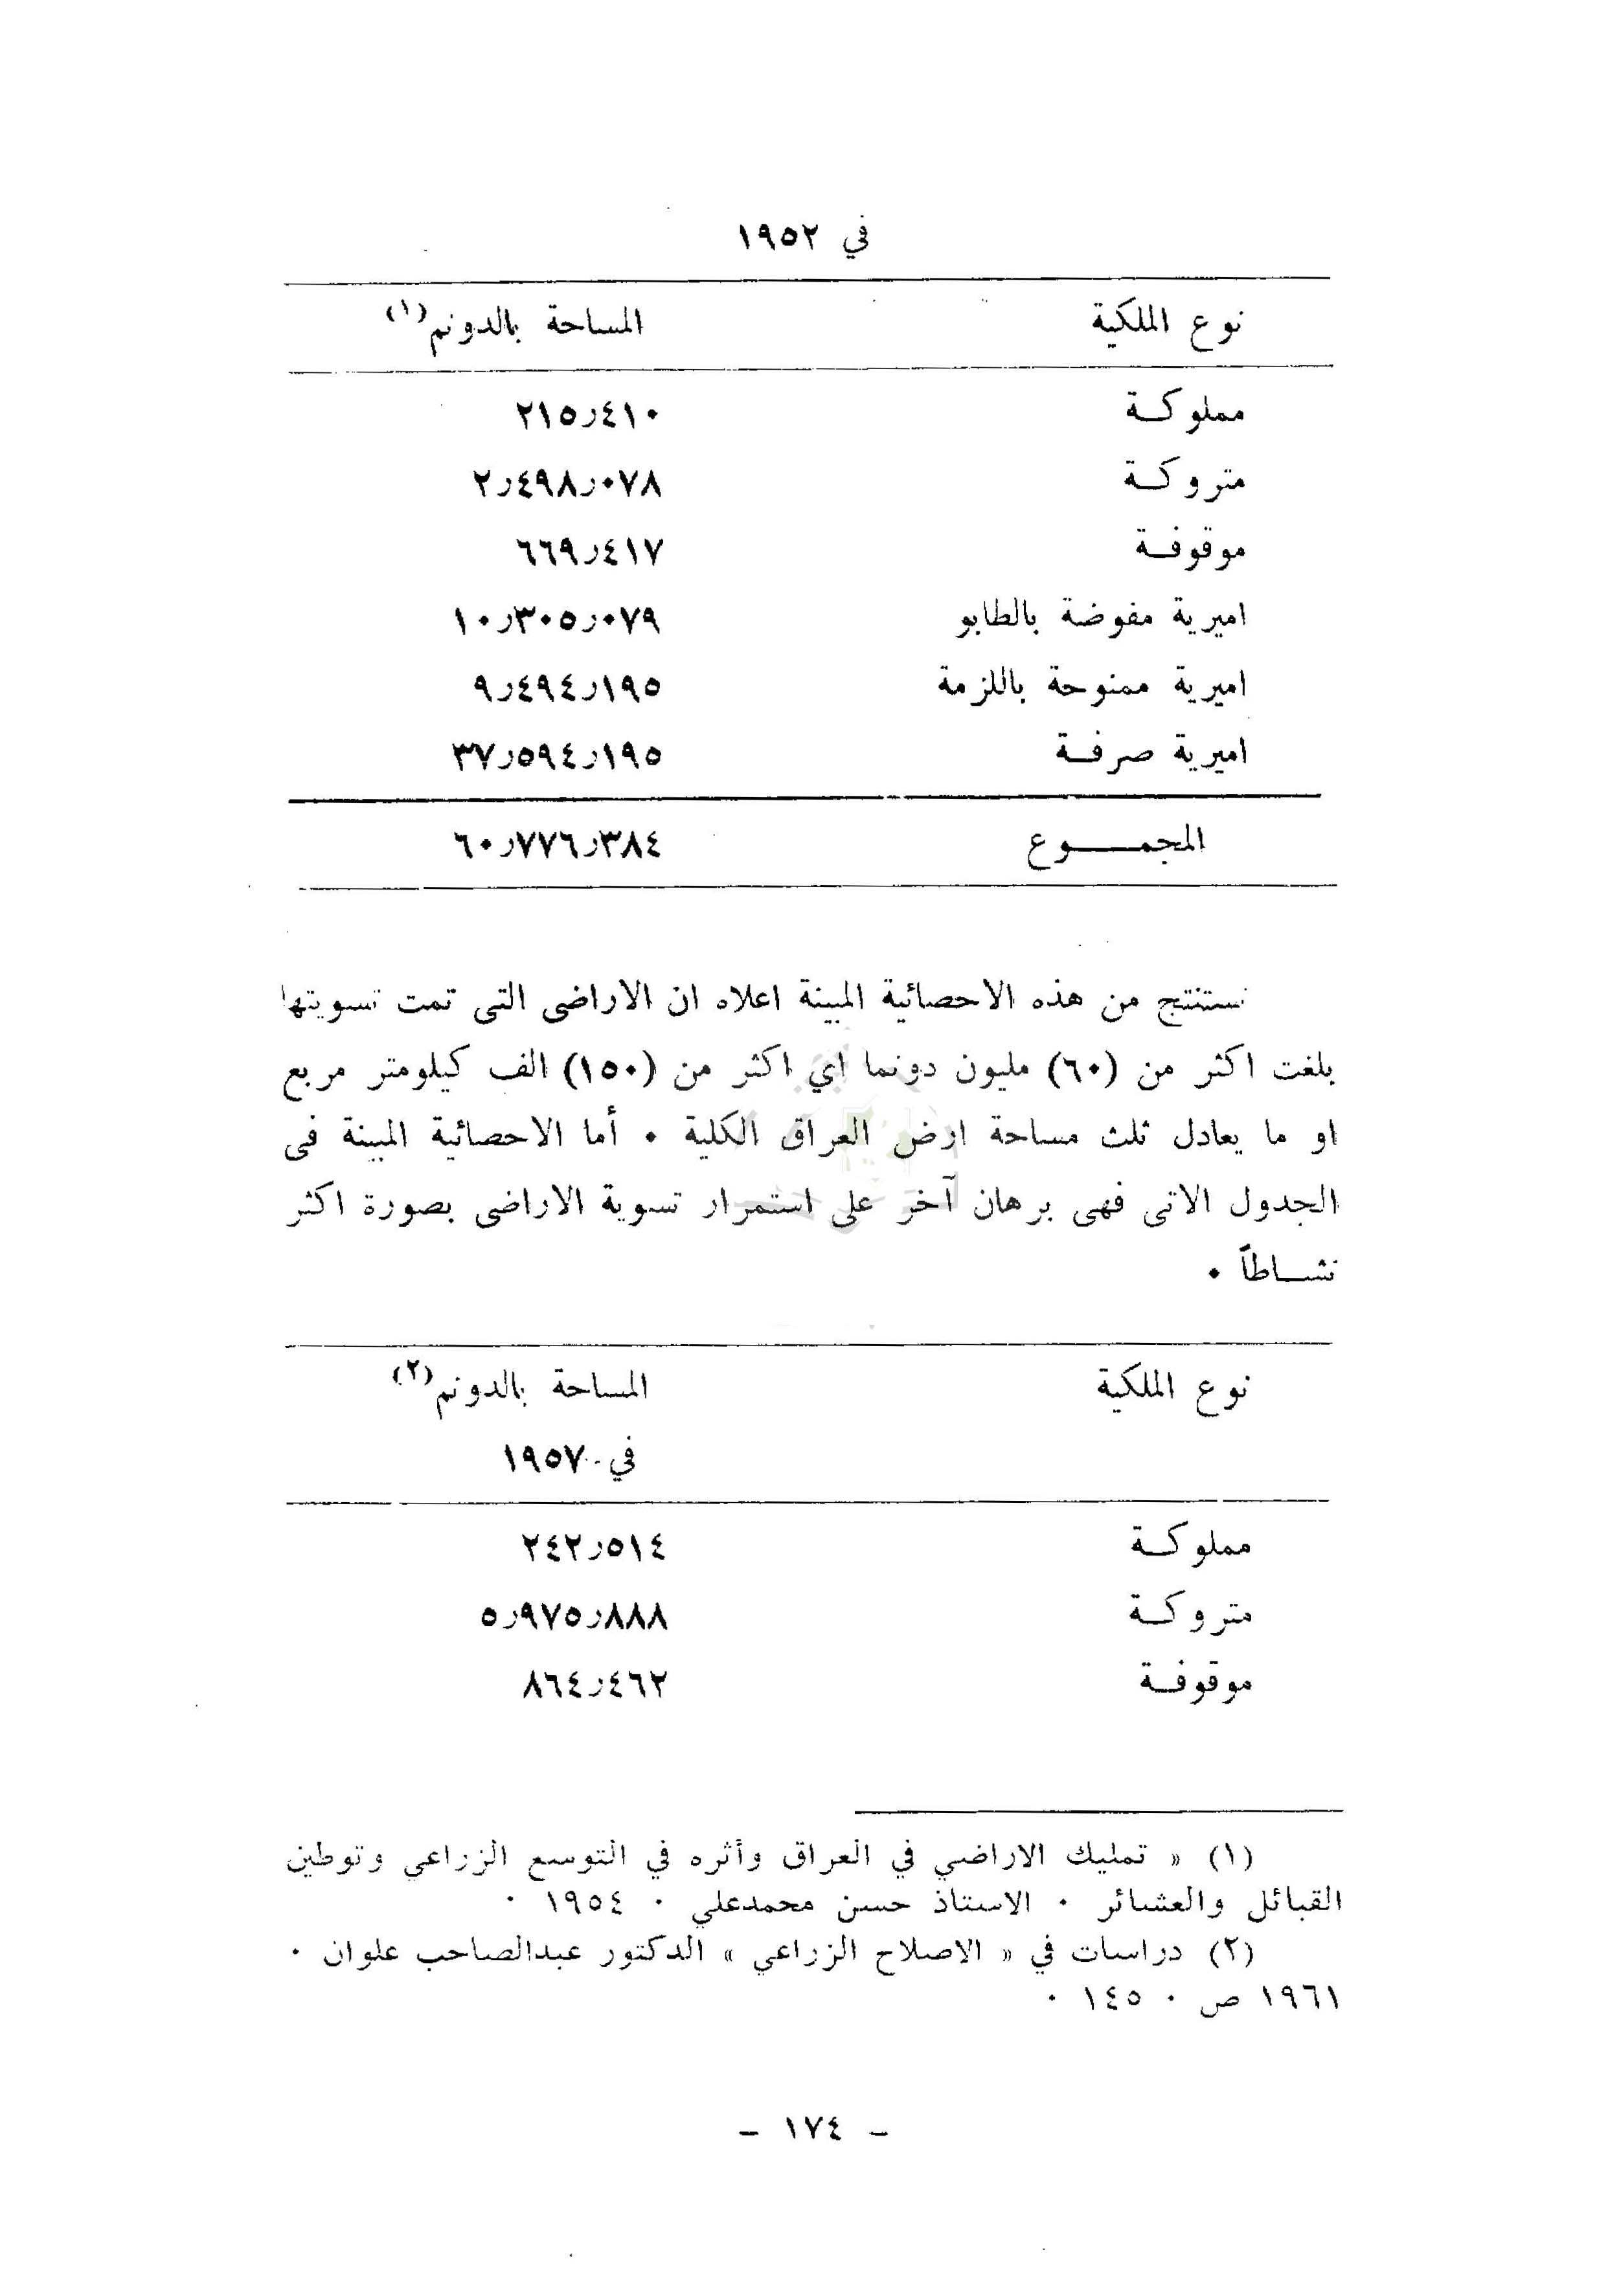 في ١٩٥٢
نوع الملكية المساحة بالدونم(١)
مملوكـة ٢١٥ر٤١٠
متروكـة ٢ر٤٩٨ر٠٧٨
موقوفـة ٦٦٩ر٤١٧
اميرية مفوضة بالطابو ١٠ر٣٠٥ر٠٧٩
اميرية ممنوحة باللزمة ٩ر٤٩٤ر١٩٥
اميرية صرفـة ٣٧ر٥٩٤ر١٩٥
المجمـــوع ٦٠ر٧٧٦ر٣٨٤
نستنتج من هذه الاحصائية المبينة اعلاه ان الاراضى التى تمت تسويتها
بلغت اكثر من (٦٠) مليون دونما اي اكثر من (١٥٠) الف كيلومتر مربع
او ما يعادل ثلث مساحة ارض العراق الكلية ٠ أما الاحصائية المبينة فى
الجدول الاتى فهى برهان آخر على استمرار تسوية الاراضى بصورة اكثر
نشـاطاً ٠
نوع الملكية المساحة بالدونم(٢)
في ١٩٥٧
مملوكـة ٢٤٢ر٥١٤
متروكـة ٥ر٩٧٥ر٨٨٨
موقوفـة ٨٦٤ر٤٦٢
(١) « تمليك الاراضي في العراق وأثره في التوسع الزراعي وتوطين
القبائل والعشائر ٠ الاستاذ حسن محمدعلي ٠ ١٩٥٤ ٠
(٢) دراسات في « الاصلاح الزراعي » الدكتور عبدالصاحب علوان ٠
١٩٦١ ص ٠ ١٤٥ ٠
- ١٧٤ -